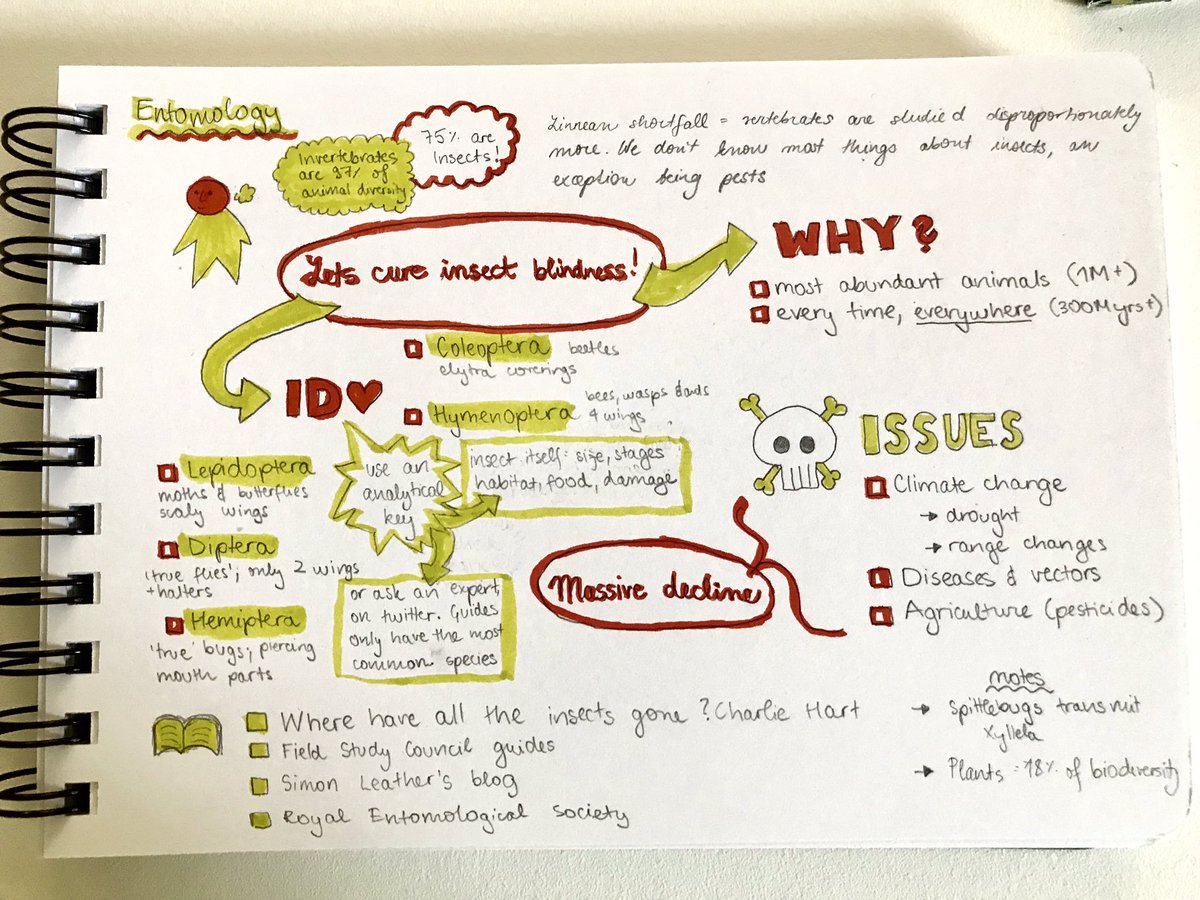 Entomology
Invertebrates
are 97% of
animal diversity
75% are
insects!
Linnean shortfall = vertebrates are studied disproportionately
more. We don't know most things about insects, an
exception being pests
Lets cure insect blindness!
WHY?
most abundant animals (1M+)
every time, everywhere (300Myrs+)
ID
Coleoptera beetles
elytra coverings
Hymenoptera bees, wasps & ants
4 wings
Lepidoptera
moths & butterflies
scaly wings
Diptera
'true flies'; only 2 wings
+halters
Hemiptera
'true' bugs; piercing
mouth parts
use an
analytical
key
insect itself: size, stages
habitat, food, damage
or ask an expert
on twitter. Guides
only have the most
common species
Massive decline
ISSUES
Climate change
→ drought
→ range changes
Diseases & vectors
Agriculture (pesticides)
Where have all the insects gone? Charlie Hart
Field Study Council guides
Simon Leather's blog
Royal Entomological Society
notes
→ Spittlebugs transmit
Xyllela
→ Plants = 18% of biodiversity